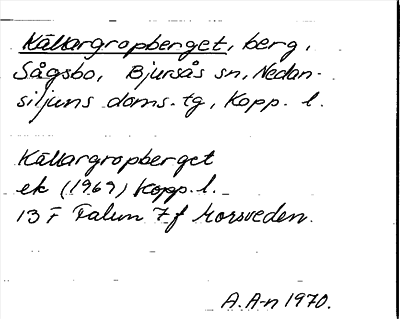 Källargropberget, berg,
Sågsbo, Bjursås sn, Nedan-
siljans doms. tg, Kopp. l.
Källargropberget
ek (1969) Kopp. l.
13 F Falun 7 f Morsveden.
A. A-n 1970.